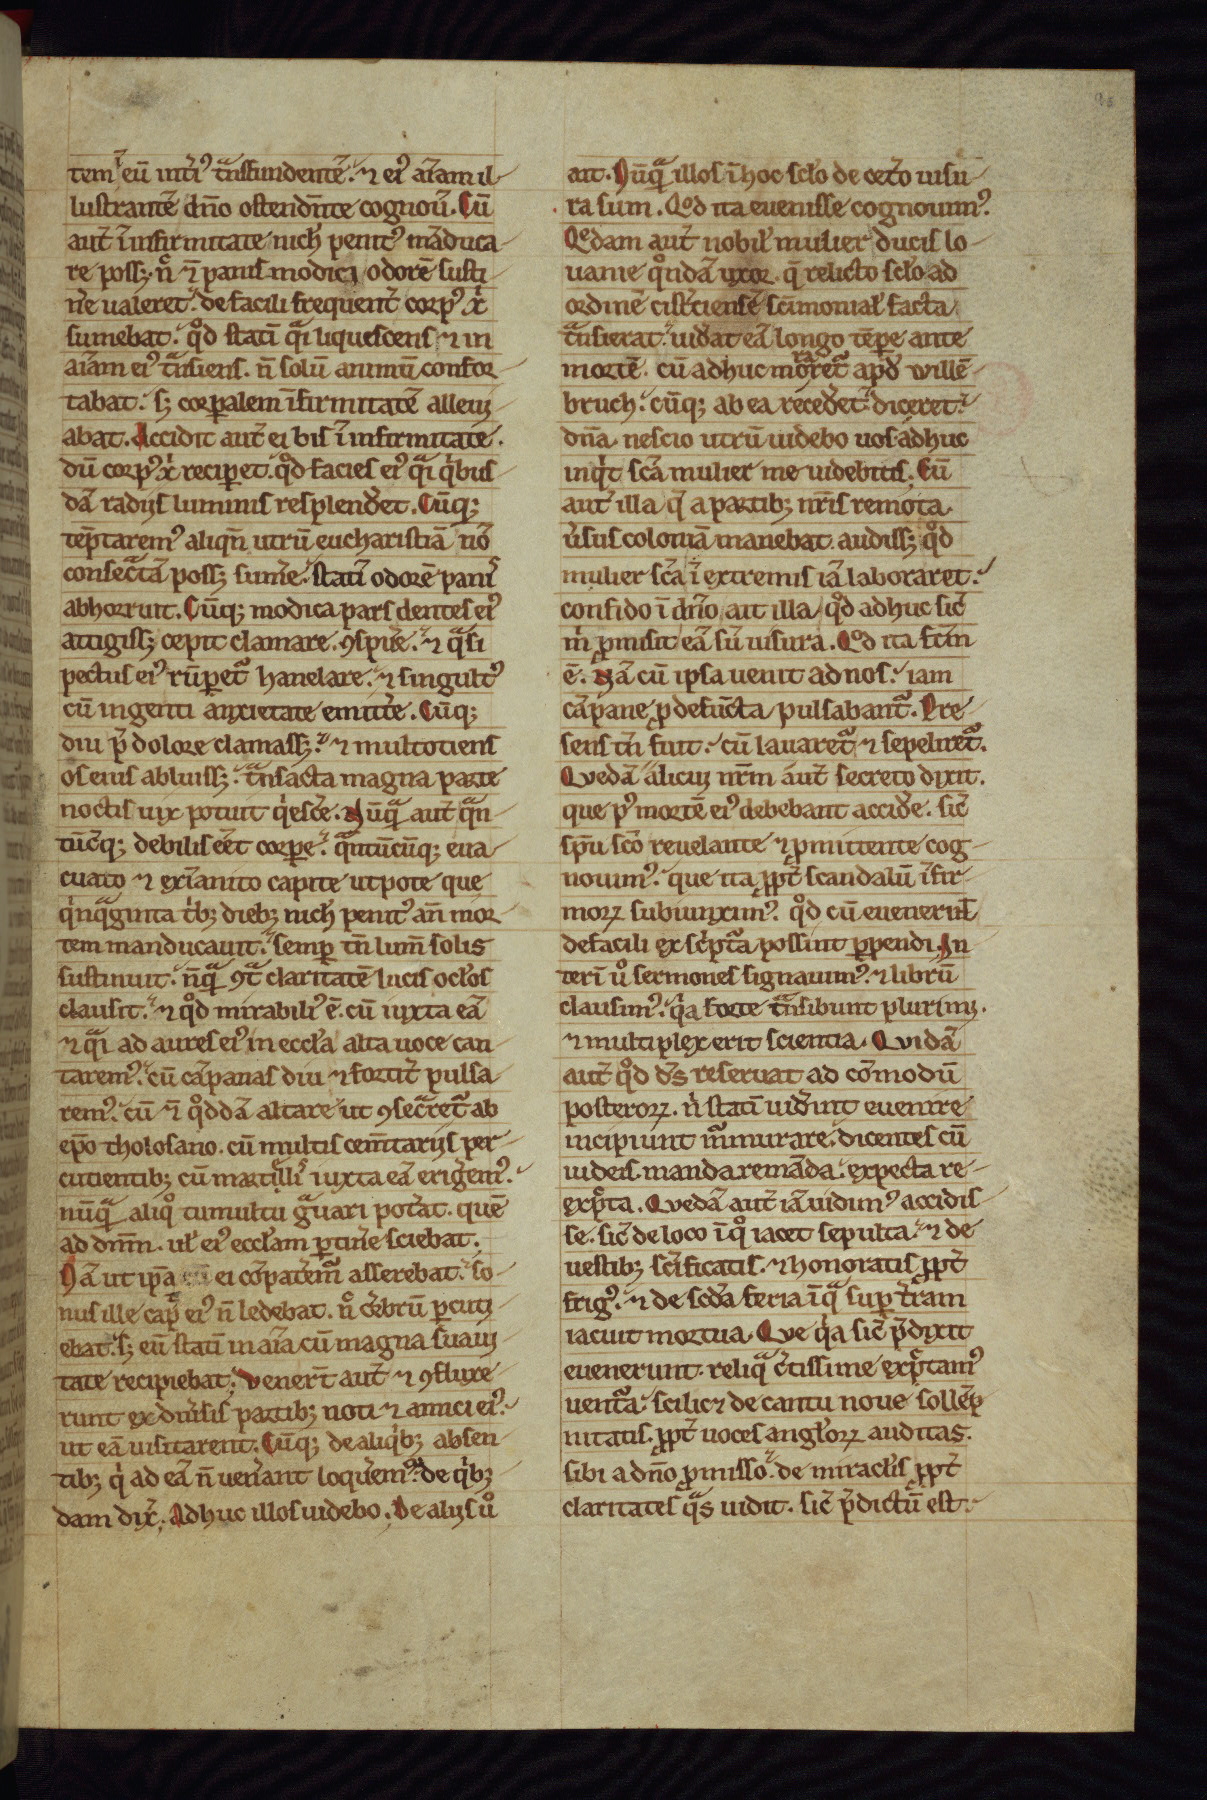 tem eū int̄iꝰ tᵃnsfundentē. ⁊ eiꝰ aīam il-
lustrantē dn̄o ostendn̄te cognouͥ. Cū
aut̄ ī infirmitate nich̄ penitꝰ māduca-
re possꝫ. nͦ ⁊̄ panis modici odorē susti-
n̄e ualeret. de facili frequent̄ corpꝰ xͥ
sumebat. qͦd statī qͣi liquescens ⁊ in
aīam eiꝰ tᵃnsiens. n̄ solū animū confor-
tabat. sꝫ corꝑalem īfirmitatē alleuį-
abat. Accidit aut̄ ei bis ī infirmitate.
dū corpꝰ xͥ reciꝑet. qͦd facies eiꝰ qͣi qͥbus
dā radijs luminis resplend̄et. Cūqꝫ
tēptaremꝰ aliqn̄ utrū eucharistiā nō
consecᵃtā possꝫ sum̄e. statī odorē panis
abhorruit. Cūqꝫ modica pars dentes eiꝰ
attigissꝫ cepit clamare. ꝯspūe. ⁊ qͣsi
pectus eiꝰ rūꝑetᵃ hanelare. ⁊ singultꝰ
cū ingenti anxietate emitt̄e. Cūqꝫ
diu p̄ dolore clamassꝫ. ⁊ multotiens
os eius abluissꝫ. tᵃnsacta magna parte
noctis uix potuit qͥesc̄e. Nūqͣ aut̄ qͣn
tūcqꝫ debilis ēet corpe. qͣntūcūqꝫ eua
cuato ⁊ exīanito capite utpote que
qͥnqͣginta tͥbꝫ diebꝫ nich̄ penitꝰ an̄ mor-
tem manducauit. semꝑ tn̄ lum̄ solis
sustinuit. n̄qͣ ꝯtᵃ claritatē lucis oclōs
clausit. ⁊ qͦd mirabiliꝰ ē. cū iuxta eā
⁊ qͣi ad aures eiꝰ in ecclā alta uoce can
taremꝰ. cū cāpanas diu ⁊ fortit̄ pulsa
remꝰ. cū ⁊̄ qͦddā altare ut ꝯsecᵃretᵃ ab
epō tholosano. cū multis cem̄tarijs per-
cutientibꝫ cū martillis iuxta eā eriḡemꝰ.
nūqͣ aliqͦ tumultu gᵃuari pot̄at. quē
ad dn̄m. ul̄ eiꝰ eccl̄am ꝑtin̄e sciebat.
Nā ut ip̄a ei asserebat. so-
nus ille capᵃ eiꝰ n̄ ledebat. nͦ c̄ebrū ꝑcuti-
ebat. sꝫ eū statī in aīa cū magna suaui-
tate recipiebat. Venert̄ aut̄ ⁊ ꝯfluxe-
runt ex diūsis partibꝫ noti ⁊ amici eiꝰ.
ut eā uisitarent. Cūqꝫ de aliqͥbꝫ absen-
tibꝫ qͥ ad eā n̄ uen̄ant loqūemꝰ. de qͥbꝫ-
dam dix̄. Adhuc illos uidebo. De alijs uͦ
ait. Nūqͣ illos ī hoc sclō de cet̄o uisu-
ra sum. Qͦd ita euenisse cognouimꝰ.
Qͤdam aut̄ nobil̄ mulier ducis lo-
uanie qͦndā uxor. q̄ relicto sclō ad
ordinē cist̄ciensē sc̄imonial̄ facta
tᵃnsierat. uid̄at eā longo tēpe ante
mortē. cū adhuc moraretᵃ apd̄ willē-
bruch. cūqꝫ ab ea reced̄et. diceret.
dn̄a. nescio utrū uidebo uos adhuc
inqͥt sc̄a mulier me uidebitis. Cū
aut̄ illa q̄ a partibꝫ nr̄is remota.
ūsus coloniā manebat. audissꝫ qͦd
mulier sc̄a ī extremis iā laboraret.
confido ī dn̄o ait illa. qͦd adhuc sic̄
mͥ ꝓmisit eā sū uisura. Qͦd ita fc̄m
ē. Nā cū ipsa uenit ad nos. iam
cāpane ꝓ defūcta pulsabantᵃ. Pre-
sens tn̄ fuit. cū lauaretᵃ ⁊ sepeliretᵃ.
Quedā alicui nr̄m aut̄ secreto dixit.
que pꝰ mortē eiꝰ debebant accid̄e. sic̄
sp̄u scō reuelante ⁊ ꝓmittente cog-
nouimꝰ. que ita ꝓpt̄ scandalū īfir-
morꝝ subiunximꝰ. qͦd cū euenerīt
de facili ex scͥptᵃ possint ꝑpendi. In
terī uͦ sermones signauimꝰ. ⁊ librū
clausimꝰ. qͥa forte tᵃnsibunt plurimį.
⁊ multiplex erit scientia. Quidā
aut̄ qͦd dͤs reseruat ad cōmodū
posterorꝝ. nͥ statī uid̄int euenire
incipiunt mᵃmurare. dicentes cū
uideis. manda remāda. expecta re-
expᵉta. Quedā aut̄ iā uidimꝰ accidis
se. sic̄ de loco ī qͦ iacet sepulta. ⁊ de
uestibꝫ sc̄ificatis. ⁊ honoratis ꝓpt̄
frigꝰ. ⁊ de scd̄a feria ī qͣ suꝑ t̄ram
iacuit mortua. Que qͥa sic̄ p̄dixit
euenerunt. reliqͣ c̄tissime expᵉtamꝰ
uentᵃa. scilicꝫ de cantu noue sollēp
nitatis. ꝓpt̄ uoces anglōrꝝ auditas.
sibi a dn̄o ꝓmisso. de miraclīs ꝓpt̄
claritates qͣs uidit. sic̄ p̄dictū est.